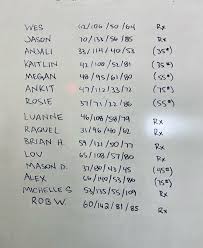 WES
JASON 70/133/56/85 Rx
ANJALI 33/114/40/53 (35#)
KAITLIN 42/108/52/81 (75#)
MEGAN 48/95/61/80 (55#)
ANKIT 47/112/33/72 (75#)
ROSIE 37/71/22/86 (55#)
LUANNE 46/108/58/79 Rx
RAQUEL 31/96/40/62 Rx
BRIAN H. 59/121/90/77 Rx
LOU 65/108/57/80 Rx
MASON D. 37/80/43/45 (45#)
ALEX 66/140/53/80 (75#)
MICHELLE S 53/135/55/109 Rx
ROB W. 60/142/81/85 Rx